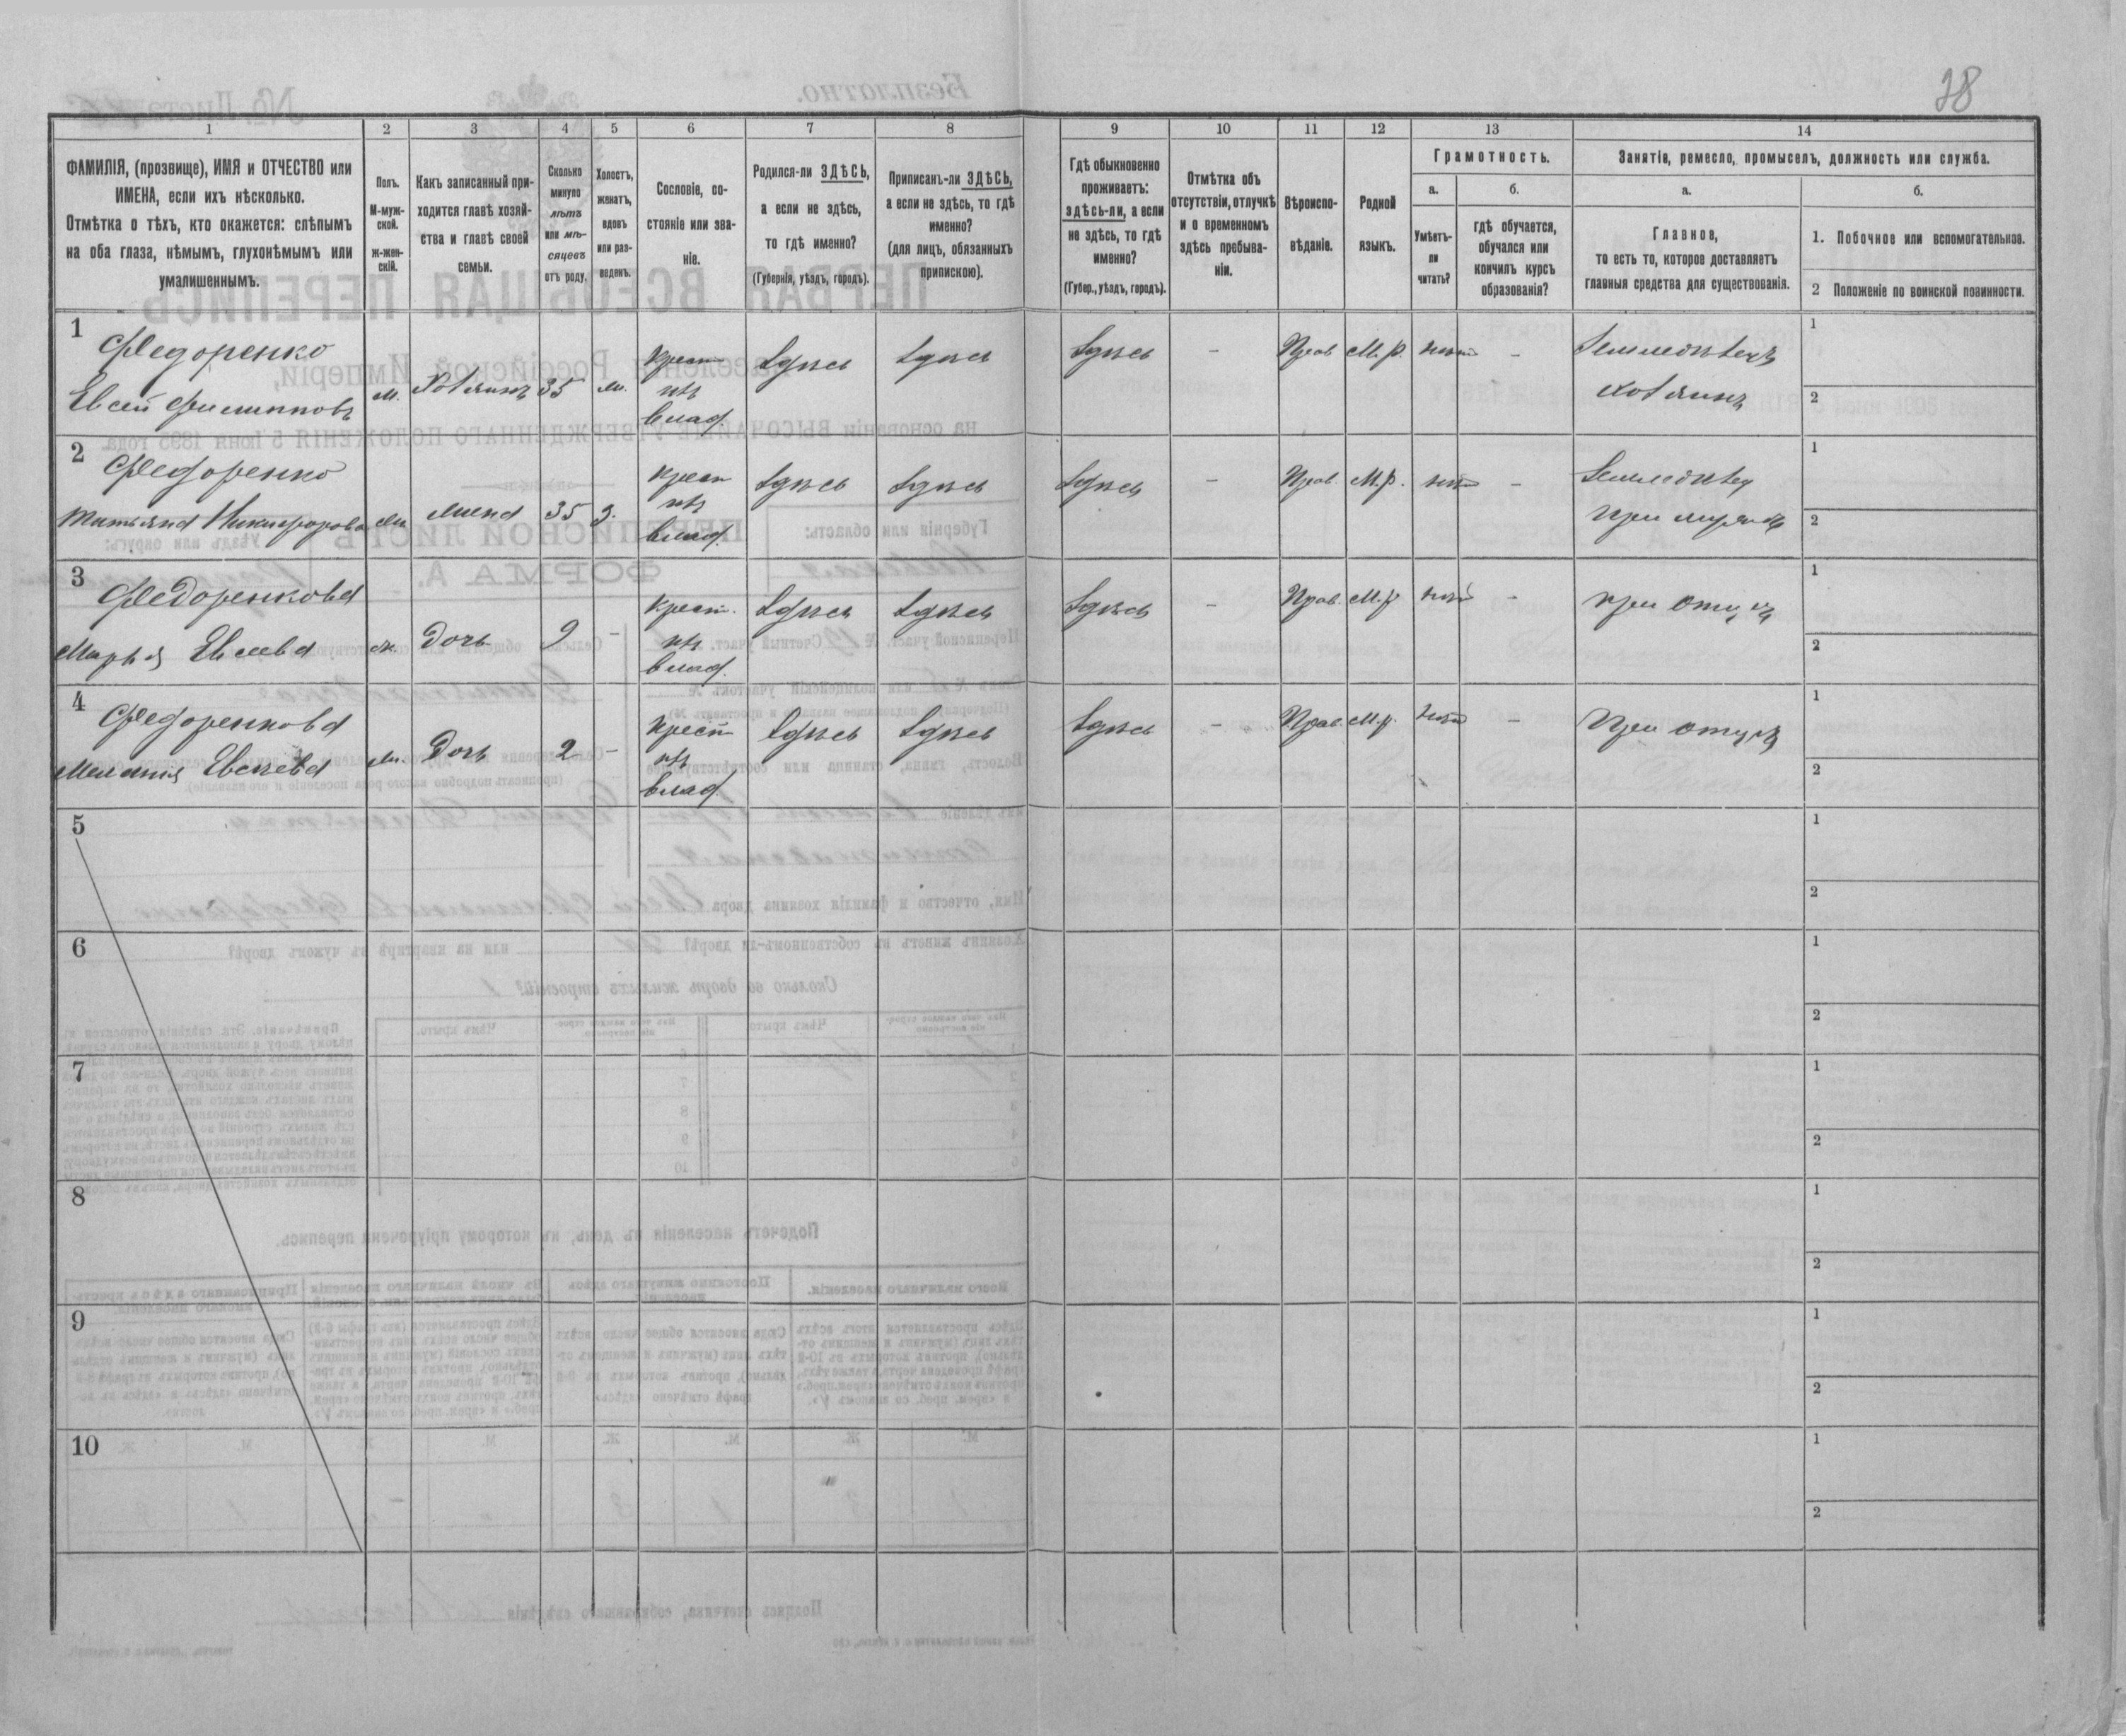 38
1 2 3 4 5 6 7 8 9 10 11 12 13 14
ФАМИЛІЯ, (прозвище), ИМЯ и ОТЧЕСТВО или
ИМЕНА, если ихъ нѣсколько.
Отмѣтка о тѣхъ, кто окажется: слѣпымъ
на оба глаза, нѣмымъ, глухонѣмымъ или
умалишеннымъ.
Полъ.
М-муж-
ской.
ж-жен-
скій.
Какъ записанный при-
ходится главѣ хозяй-
ства и главѣ своей
семьи.
Сколько
минуло
лѣтъ
или мѣ-
сяцевъ
отъ роду.
Холостъ,
женатъ,
вдовъ
или раз-
веденъ.
Сословіе, со-
стояніе или зва-
ніе.
Родился-ли ЗДѢСЬ,
а если не здѣсь,
то гдѣ именно?
(Губернія, уѣздъ, городъ).
Приписанъ-ли ЗДѢСЬ,
а если не здѣсь, то гдѣ
именно?
(для лицъ, обязанныхъ
припискою).
Гдѣ обыкновенно
проживаетъ:
здѣсь-ли, а если
не здѣсь, то гдѣ
именно?
(Губер., уѣздъ, городъ).
Отмѣтка объ
отсутствіи, отлучкѣ
и о временномъ
здѣсь пребыва-
ніи.
Вѣроиспо-
вѣданіе.
Родной
языкъ.
Грамотность.
а.
Умѣетъ-
ли
читать?
б.
гдѣ обучается,
обучался или
кончилъ курсъ
образованія?
Занятіе, ремесло, промыселъ, должность или служба.
а.
Главное,
то есть то, которое доставляетъ
главныя средства для существованія.
б.
1. Побочное или вспомогательное.
2 Положеніе по воинской повинности.
1
Федоренко
Евсей Филипповъ
м. Хозяинъ 35 ж. Крест. изъ влад. Здѣсь Здѣсь Здѣсь - Прав. М.р. нѣтъ - Земледѣлецъ хозяинъ
1
2
2
Федоренко
Татьяна Никифорова
ж. жена 35 з. Крест. изъ влад. Здѣсь Здѣсь Здѣсь - Прав. М.р. нѣтъ -
1
2
3
Федоренкова
Марья Евсеева
ж. Дочь 9 - Крест. изъ влад. Здѣсь Здѣсь Здѣсь - Прав. М.р. нѣтъ - при отцѣ
1
2
4
Федоренкова
Меланія Евсеева
ж. Дочь 2 - Крест. изъ влад. Здѣсь Здѣсь Здѣсь - Прав. М.р. нѣтъ - При отцѣ
1
2
5
1
2
6
1
2
7
1
2
8
1
2
9
1
2
10
1
2